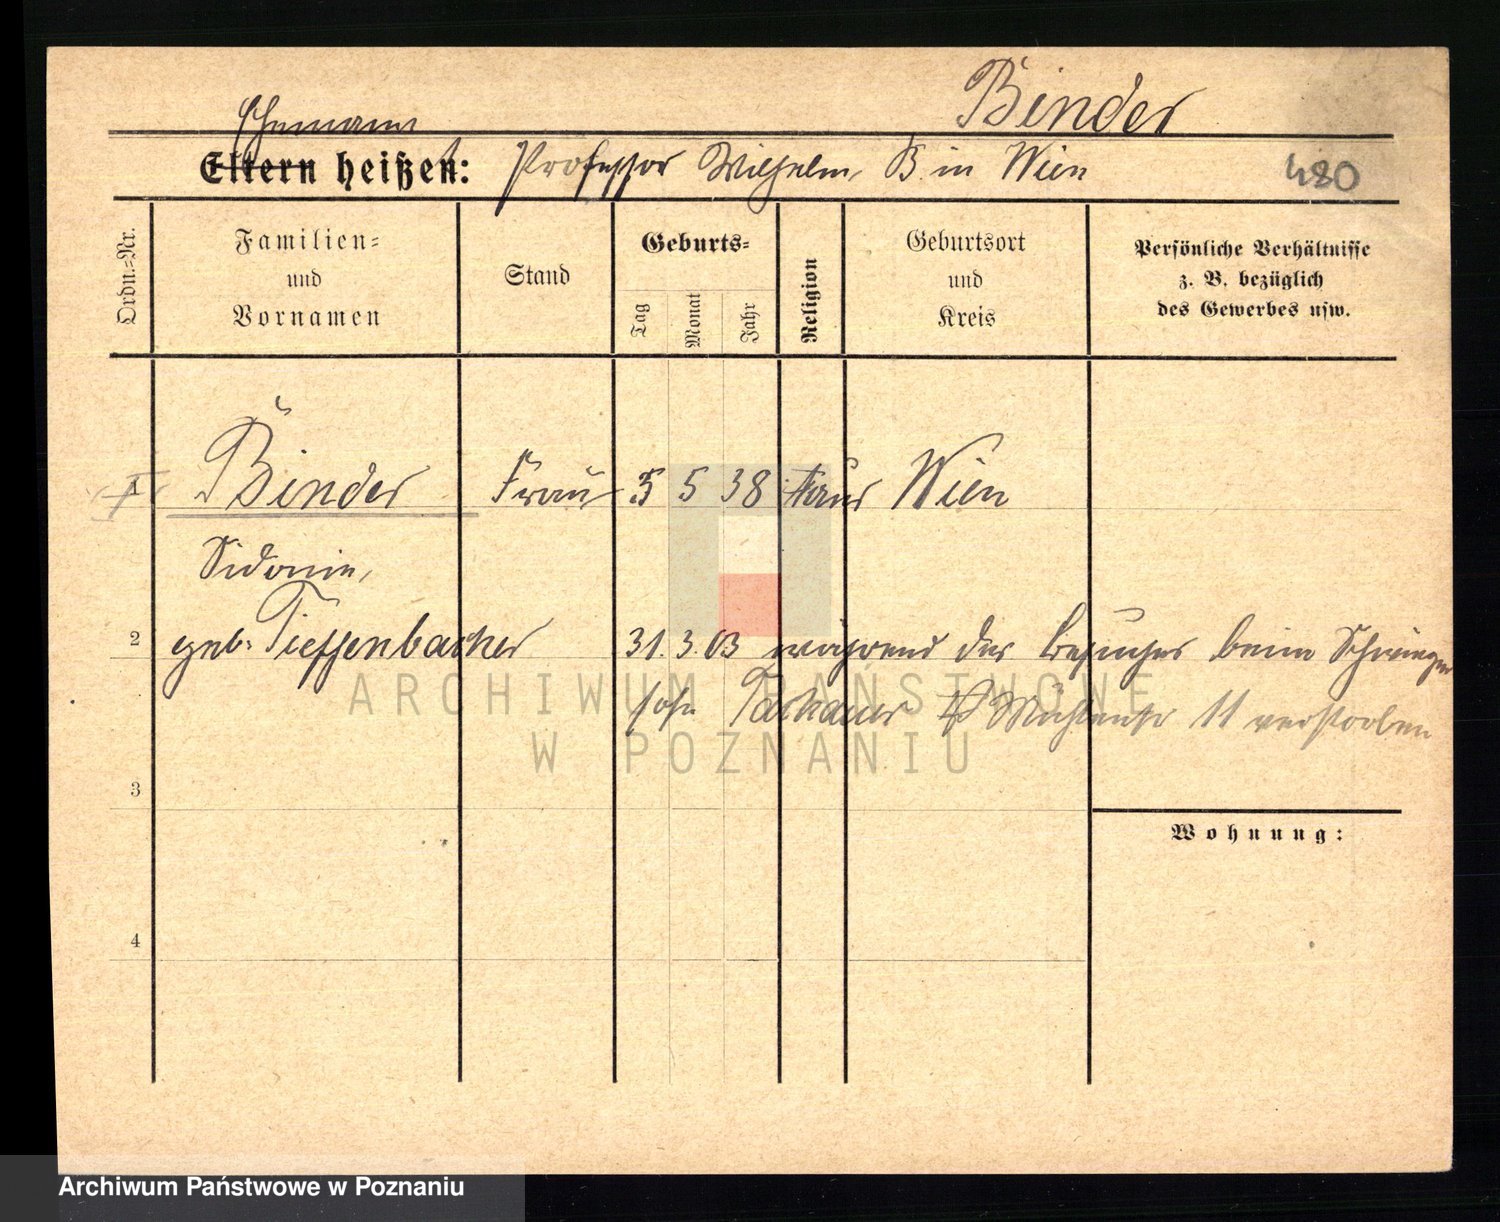 Binder
Ehemann
Eltern heißen: Professor Wilhelm B. in Wien
480
Ordn.=Nr.
Familien=
und
Vornamen
Stand
Geburts=
Tag
Monat
Jahr
Religion
Geburtsort
und
Kreis
Persönliche Verhältnisse
z. B. bezüglich
des Gewerbes usw.
1 Binder Frau 5 5 38 Wien
Sidonie,
2 geb. Tieffenbacher 31. 3. 03 während des Besuches beim Schwieger
sohn 11 verstorben
ARCHIWUM PAŃSTWOWE
W POZNANIU
3
Wohnung:
4
Archiwum Państwowe w Poznaniu